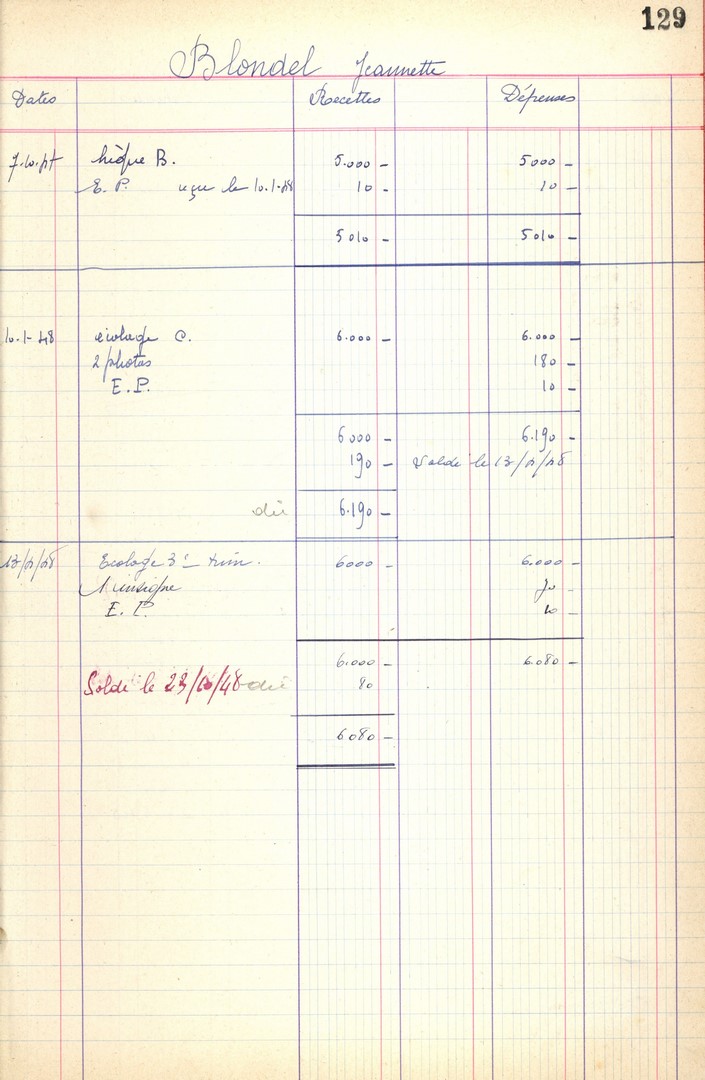 129
Blondel Jeannette
Dates Recettes Dépenses
7.10.47 chèque B. 5.000 - 5000 -
E. P. reçu le 10.1.48 10 - 10 -
5010 - 5010 -
10.1-48 écolage C. 6.000 - 6.000 -
2 photos 180 -
E.P. 10 -
6000 - 6.190 -
190 - Soldé le 13/4/48
dû 6.190 -
13/4/48 Ecolage 3e trim. 6000 - 6.000 -
1 insigne 70 -
E. P. 10 -
6.000 - 6.080 -
Soldé le 23/10/48 dû 80
6080 -